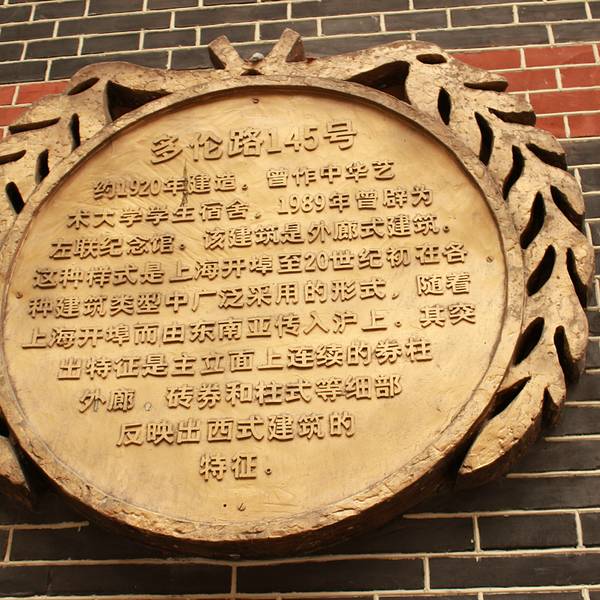 多伦路145号
约1920年建造。曾作中华艺
术大学学生宿舍，1989年曾辟为
左联纪念馆。该建筑是外廊式建筑。
这种样式是上海开埠至20世纪初在各
种建筑类型中广泛采用的形式，随着
上海开埠而由东南亚传入沪上。其突
出特征是主立面上连续的券柱
外廊。砖券和柱式等细部
反映出西式建筑的
特征。